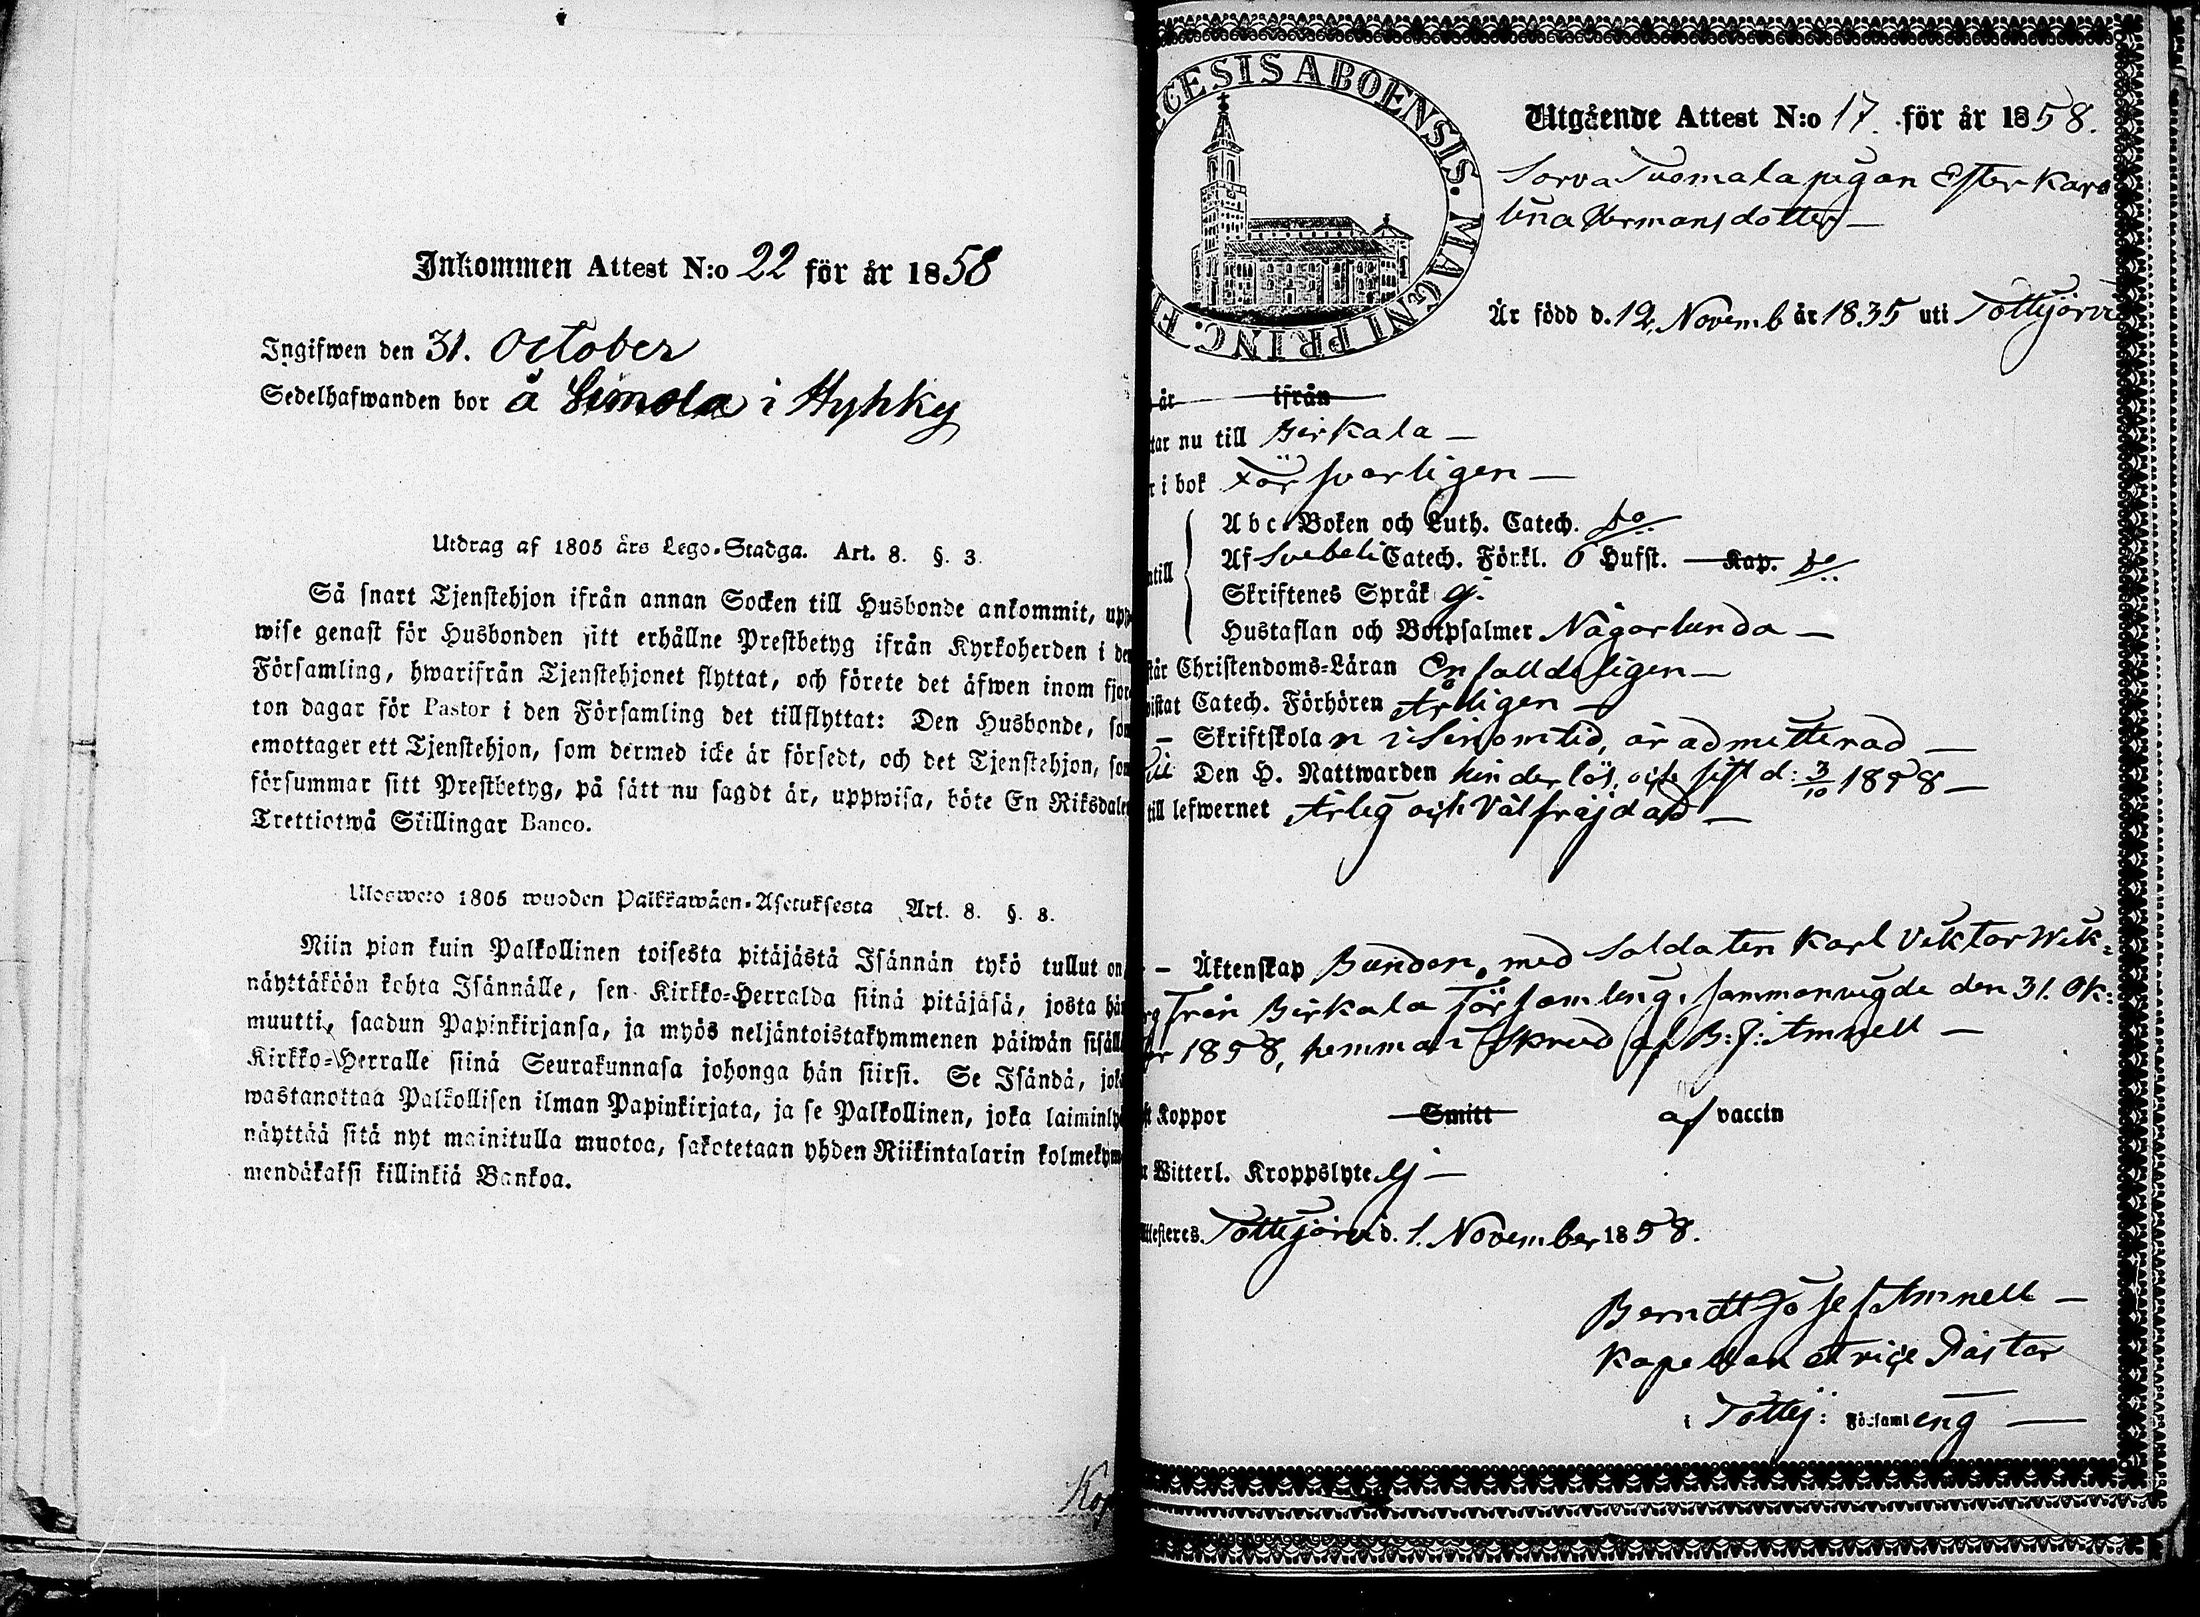 Inkommen Attest N:o 22 för år 1858
Ingifwen den 31. October
Sedelhafwanden bor å Simola i Hyhky
Utdrag af 1805 års Lego-Stadga. Art. 8. §. 3.
Så snart Tjenstehjon ifrån annan Socken till Husbonde ankommit, upp-
wise genast för Husbonden sitt erhållne Prestbetyg ifrån Kyrkoherden i den
Församling, hwarifrån Tjenstehjonet flyttat, och förete det äfwen inom fjor-
ton dagar för Pastor i den Församling det tillflyttat: Den Husbonde, som
emottager ett Tjenstehjon, som dermed icke är försedt, och det Tjenstehjon, som
försummar sitt Prestbetyg, på sätt nu sagdt är, uppwisa, böte En Riksdaler
Trettiotwå Skillingar Banco.
Ulosweto 1805 wuoden Palkkawäen-Asetuksesta Art. 8. §. 3.
Niin pian kuin Palkollinen toisesta pitäjästä Isännän tykö tullut on,
näyttäköön kohta Isännälle, sen Kirkko-Herralda siinä pitäjäsä, josta hän
muutti, saadun Papinkirjansa, ja myös neljäntoistakymmenen päiwän sisällä
Kirkko-Herralle siinä Seurakunnasa johonga hän siirsi. Se Isändä, joka
wastanottaa Palkollisen ilman Papinkirjata, ja se Palkollinen, joka laiminlyö
näyttää sitä nyt mainitulla muotoa, sakotetaan yhden Riikintalarin kolmekym-
mendäkaksi killinkiä Bankoa.
CESIS ABOENSIS. MAGNI PRINC. FI
Utgående Attest N:o 17. för år 1858.
Sorva Tuomala pigan Ester Karo
lina Hermansdotter —
Är född d. 12 Novemb år 1835 uti Tottijärvi
år ifrån
tar nu till Birkala —
r i bok Försvarligen —
Abc-Boken och Luth. Catech. do.
ntill Af Svebeli Catech. Förkl. o Hufst. Kap. do
Skriftenes Språk Ej.
Hustaflan och Botpsalmer Någorlunda —
står Christendoms-Läran Enfalldeligen —
istat Catech. Förhören Årligen —
— Skriftskolan i sinom tid, är admitterad —
till Den H. Nattwarden hinderlös, och sist d: 3/10 1858 —
till lefwernet Ärlig och Välfräjdad —
— Äktenskap Bunden, med Soldaten Karl Viktor Wik-
rg från Birkala Församling, sammanvigde den 31. Ok:
er 1858, hemma i Sorva af B: J: Amnell —
ft Koppor Smitt af vaccin
Witterl. Kroppslyte Ej —
ttesteres. Tottijärvi d. 1. November 1858.
Berndt Josef Amnell —
Kapellan etrice Pastor
i Tottij: Församling —